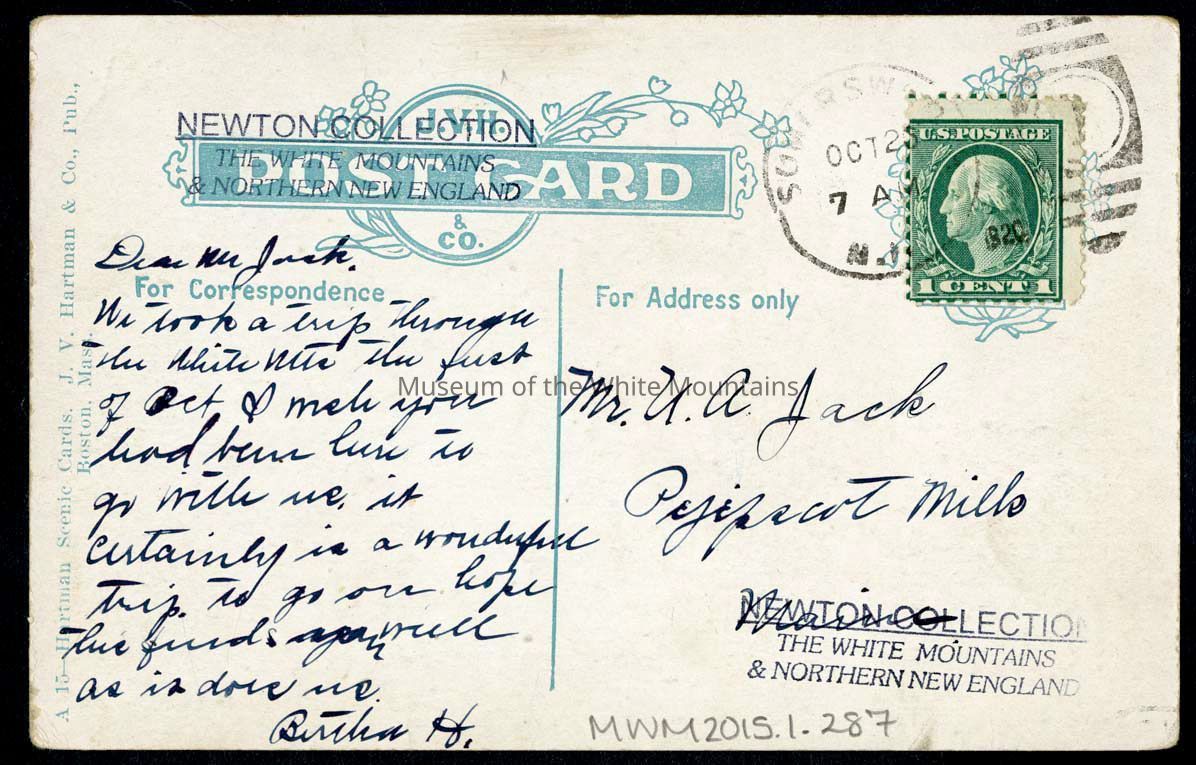 NEWTON COLLECTION
THE WHITE MOUNTAINS
& NORTHERN NEW ENGLAND
J.V.H.
POST CARD
& CO.
OCT 25
7 AM
N.J.
1920
U.S. POSTAGE
1 CENT 1
For Correspondence
For Address only
Dear Mr Jack.
We took a trip through
the White Mts the first
of Oct & wish you
had been here to
go with us. it
certainly is a wonderful
trip. to go on hope
this finds you well
as it does us.
Bertha H.
Mr. U. A. Jack
Pejepscot Mills
Maine
NEWTON COLLECTION
THE WHITE MOUNTAINS
& NORTHERN NEW ENGLAND
MWM2015.1.287
Museum of the White Mountains
A 15—Hartman Scenic Cards. J. V. Hartman & Co., Pub.,
Boston, Mass.